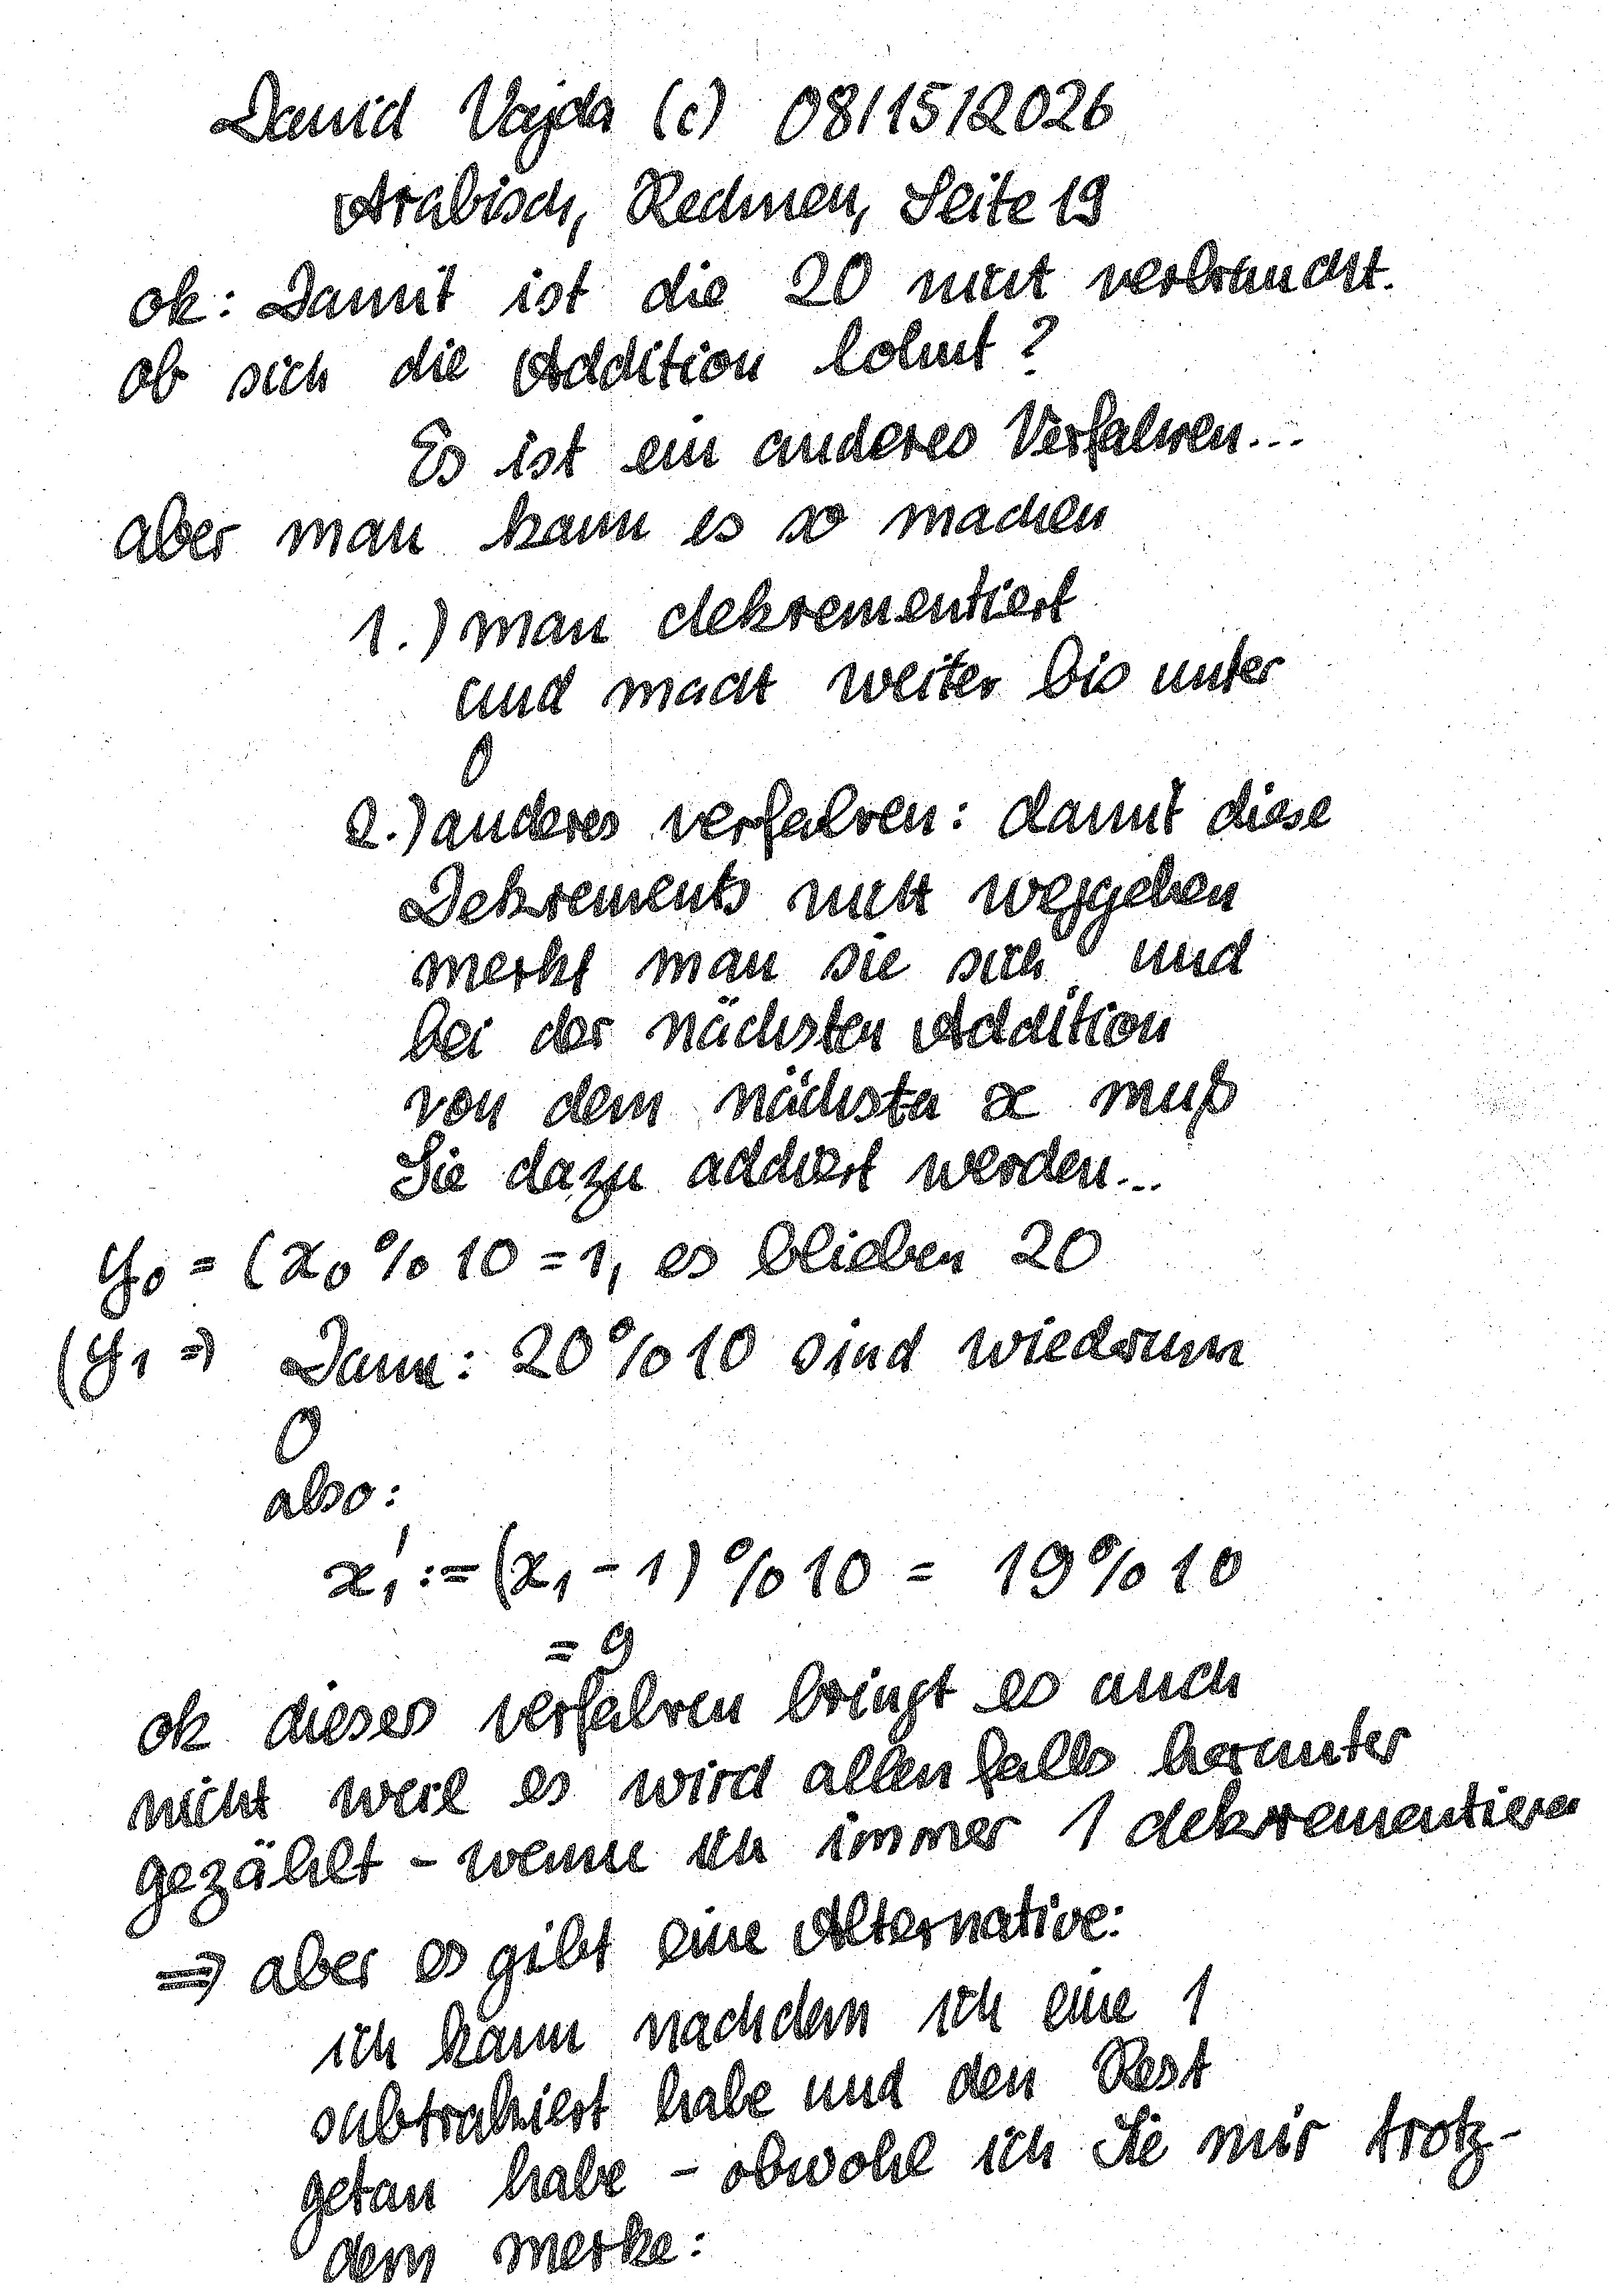 David Vajda (c) 08/15/2026
Arabisch, Rechnen, Seite 19
ok: Damit ist die 20 nicht verbraucht.
ob sich die Addition lohnt?
Es ist ein anderes Verfahren...
aber man kann es so machen
1.) man dekrementiert
und macht weiter bis unter
0
2.) anderes verfahren: damit diese
Dekrements nicht weggehen
merkt man sie sich und
bei der nächsten Addition
von dem nächsten x muß
Sie dazu addiert werden...
y₀ = (x₀ % 10 = 1, es blieben 20
(y₁ => Dann: 20 % 10 sind wiedrum
0
also:
x₁' := (x₁ - 1) % 10 = 19 % 10
= 9
ok dieses verfahren bringt es auch
nicht weil es wird allenfalls herunter
gezählt - wenn ich immer 1 dekrementiere
=> aber es gibt eine Alternative:
ich kann nachdem ich eine 1
subtrahiert habe und den Rest
getan habe - obwohl ich Sie mir trotz-
dem merke: